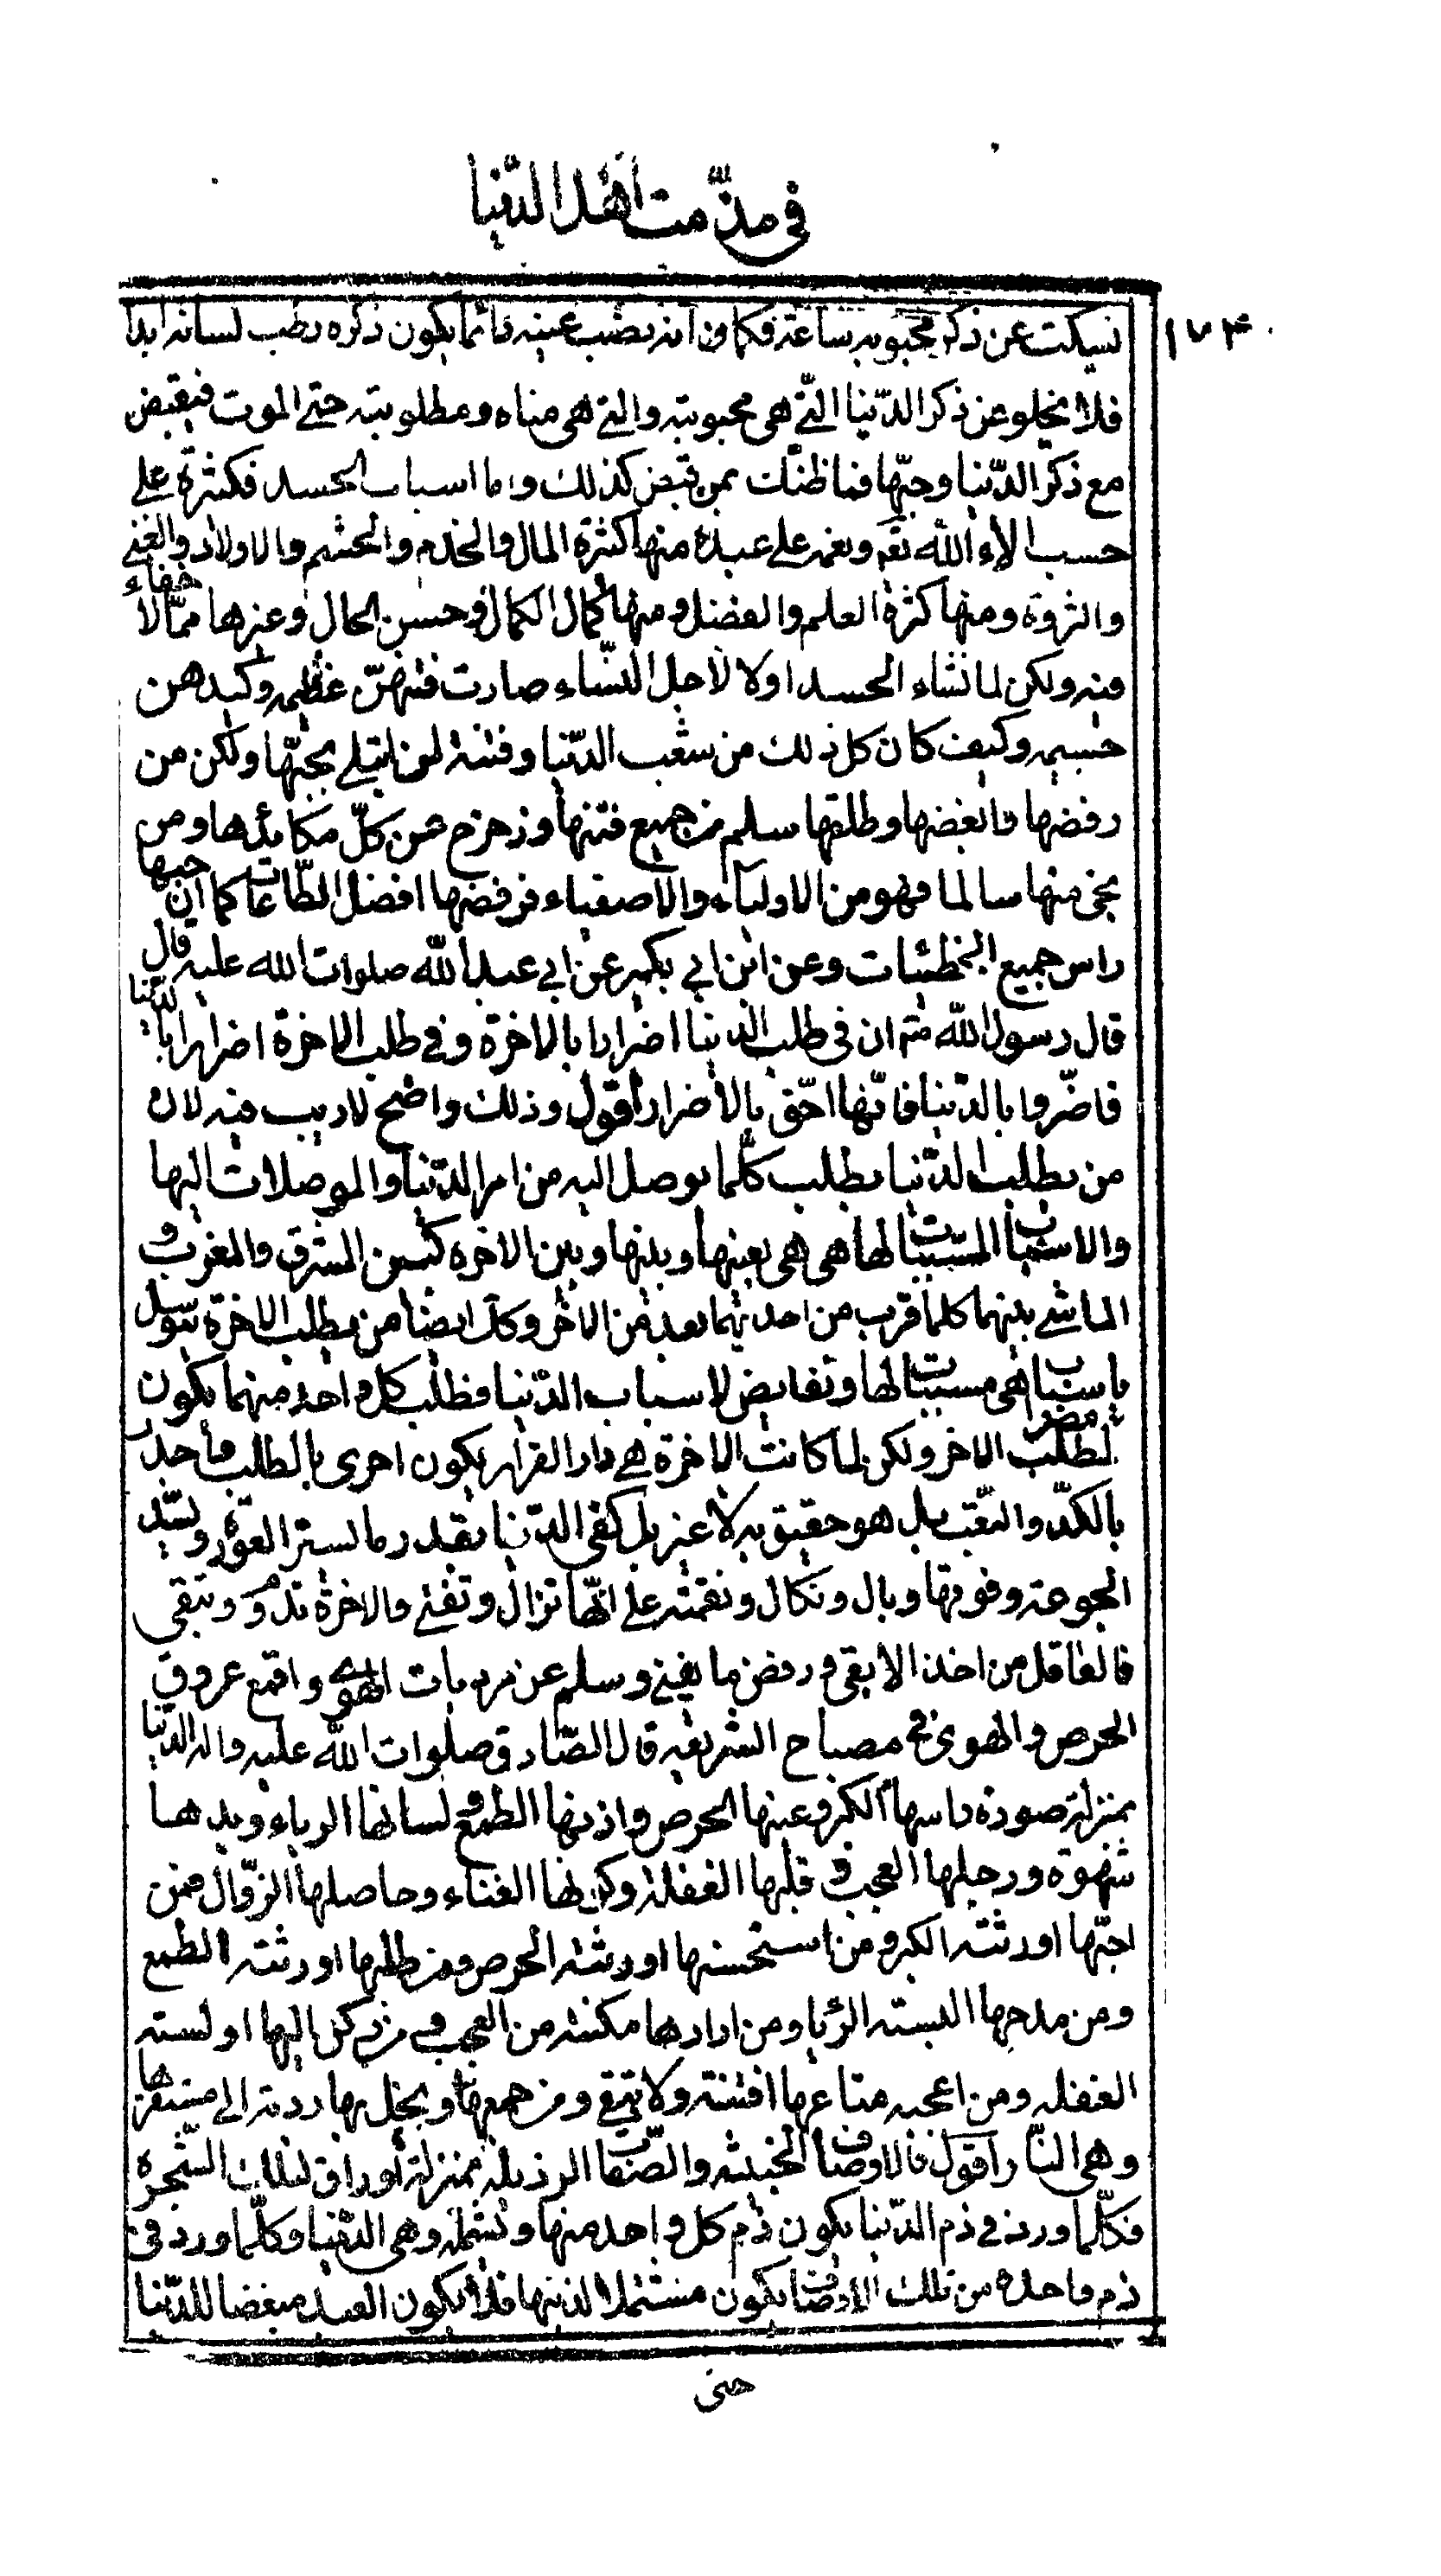 في مذّمت أهل الدّنيا
١٧٤
نسيكت عن ذكر محبوبه ساعة فكما ان انه نصب عينيه دائما يكون ذكره رطب لسانه ابدا
فلا يخلو عن ذكر الدّنيا الّتي هي محبوبته والتي هي مناه ومطلوبته حتى الموت فيقبض
مع ذكر الدّنيا وحبّها فما ظنّك بمن يقبض كذلك واما اسباب الحسد فكثرة على
حسب الاء الله تعم ونعمه على عبده منها كثرة المال والخدم والحشم والاولاد والغنى
والثروة ومنها كثرة العلم والفضل ومنها كمال الكمال وحسن الحال وغيرها ممّا لا خفاء
فيه ولكن لما نشاء الحسد اولا لاجل النّساء صارت فتنهنّ عظيمه وكيدهن
جسيمه وكيف كان كل ذلك من شعب الدّنيا وفتنة لمن ابتلى بحبّها ولكن من
رفضها وابغضها وطلقها سلم من جميع فتنها وزحزح عن كلّ مكائدها ومن
نجى منها سالما فهو من الاولياء والاصفياء فرفضها افضل الطّاعات كما ان حبها
راس جميع الخطيئات وعن ابن ابي بكير عن ابي عبد الله صلوات الله عليه قال
قال رسول الله صم ان في طلب الدنيا اضرارا بالاخرة وفي طلب الاخرة اضرارا بالدّنيا
فاضّروا بالدّنيا فانّها احّق بالاضرار أقول وذلك واضح لاريب فيه لان
من يطلب الدّنيا يطلب كلّما يوصل اليه من امر الدّنيا والموصلات اليها
والاسباب المسّببات لها هي هي بعينها وبينها وبين الاخرة كبين المشرق والمغرب و
الماشي بينهما كلما قرب من احديهما بعد من الاخر وكك ايضا من يطلب الاخرة يتوسل
باسباب هي مسببات لها ونقايض لاسباب الدّنيا فطلب كل واحد منهما يكون مضرا
لطلب الاخر ولكن لما كانت الاخرة هي دار القرار يكون احرى بالطلب واجدر
بالكدّ والتّعب بل هو حقيق به لا غير بل كفى الدّنيا بقدر ما يستر العورة ويسّد
الجوعة وفوقها وبال ونكال ونقمته على انّها تزال وتفنى والاخرة تدوم وتبقى
فالعاقل من اخذ الابقى ورفض ما يفنى وسلم عن مرديات الهوى واقمع عروق
الحرص والهوى في مصباح الشريعه قال الصّادق صلوات الله عليه واله الدّنيا
بمنزلة صورة راسها الكبر وعينها الحرص واذنها الطمع ولسانها الرياء ويدها
شهوة ورجلها العجب وقلبها الغفلة وكونها الفناء وحاصلها الزّوال فمن
احبّها اورثته الكبر ومن استحسنها اورثته الحرص ومن طلبها اورثته الطمع
ومن مدحها البسته الرّيا ومن ارادها مكنته من العجب ومن ركن اليها اولسته
الغفله ومن اعجبه متاعها افتنته ولا تبقى ومن جمعها وبخل بها ردته الى مستقرها
وهي النّار أقول فالاوصاف الخبيثه والصّفات الرذيله بمنزلة اوراق لتلك الشّجرة
فكلّما ورد في ذم الدّنيا يكون ذم كل واحد منها وتشمله وهي الدّنيا وكلّما ورد في
ذم واحدة من تلك الاوصاف يكون مشتملا لذمها فلا يكون العبد مبغضا للدّنيا
حتى